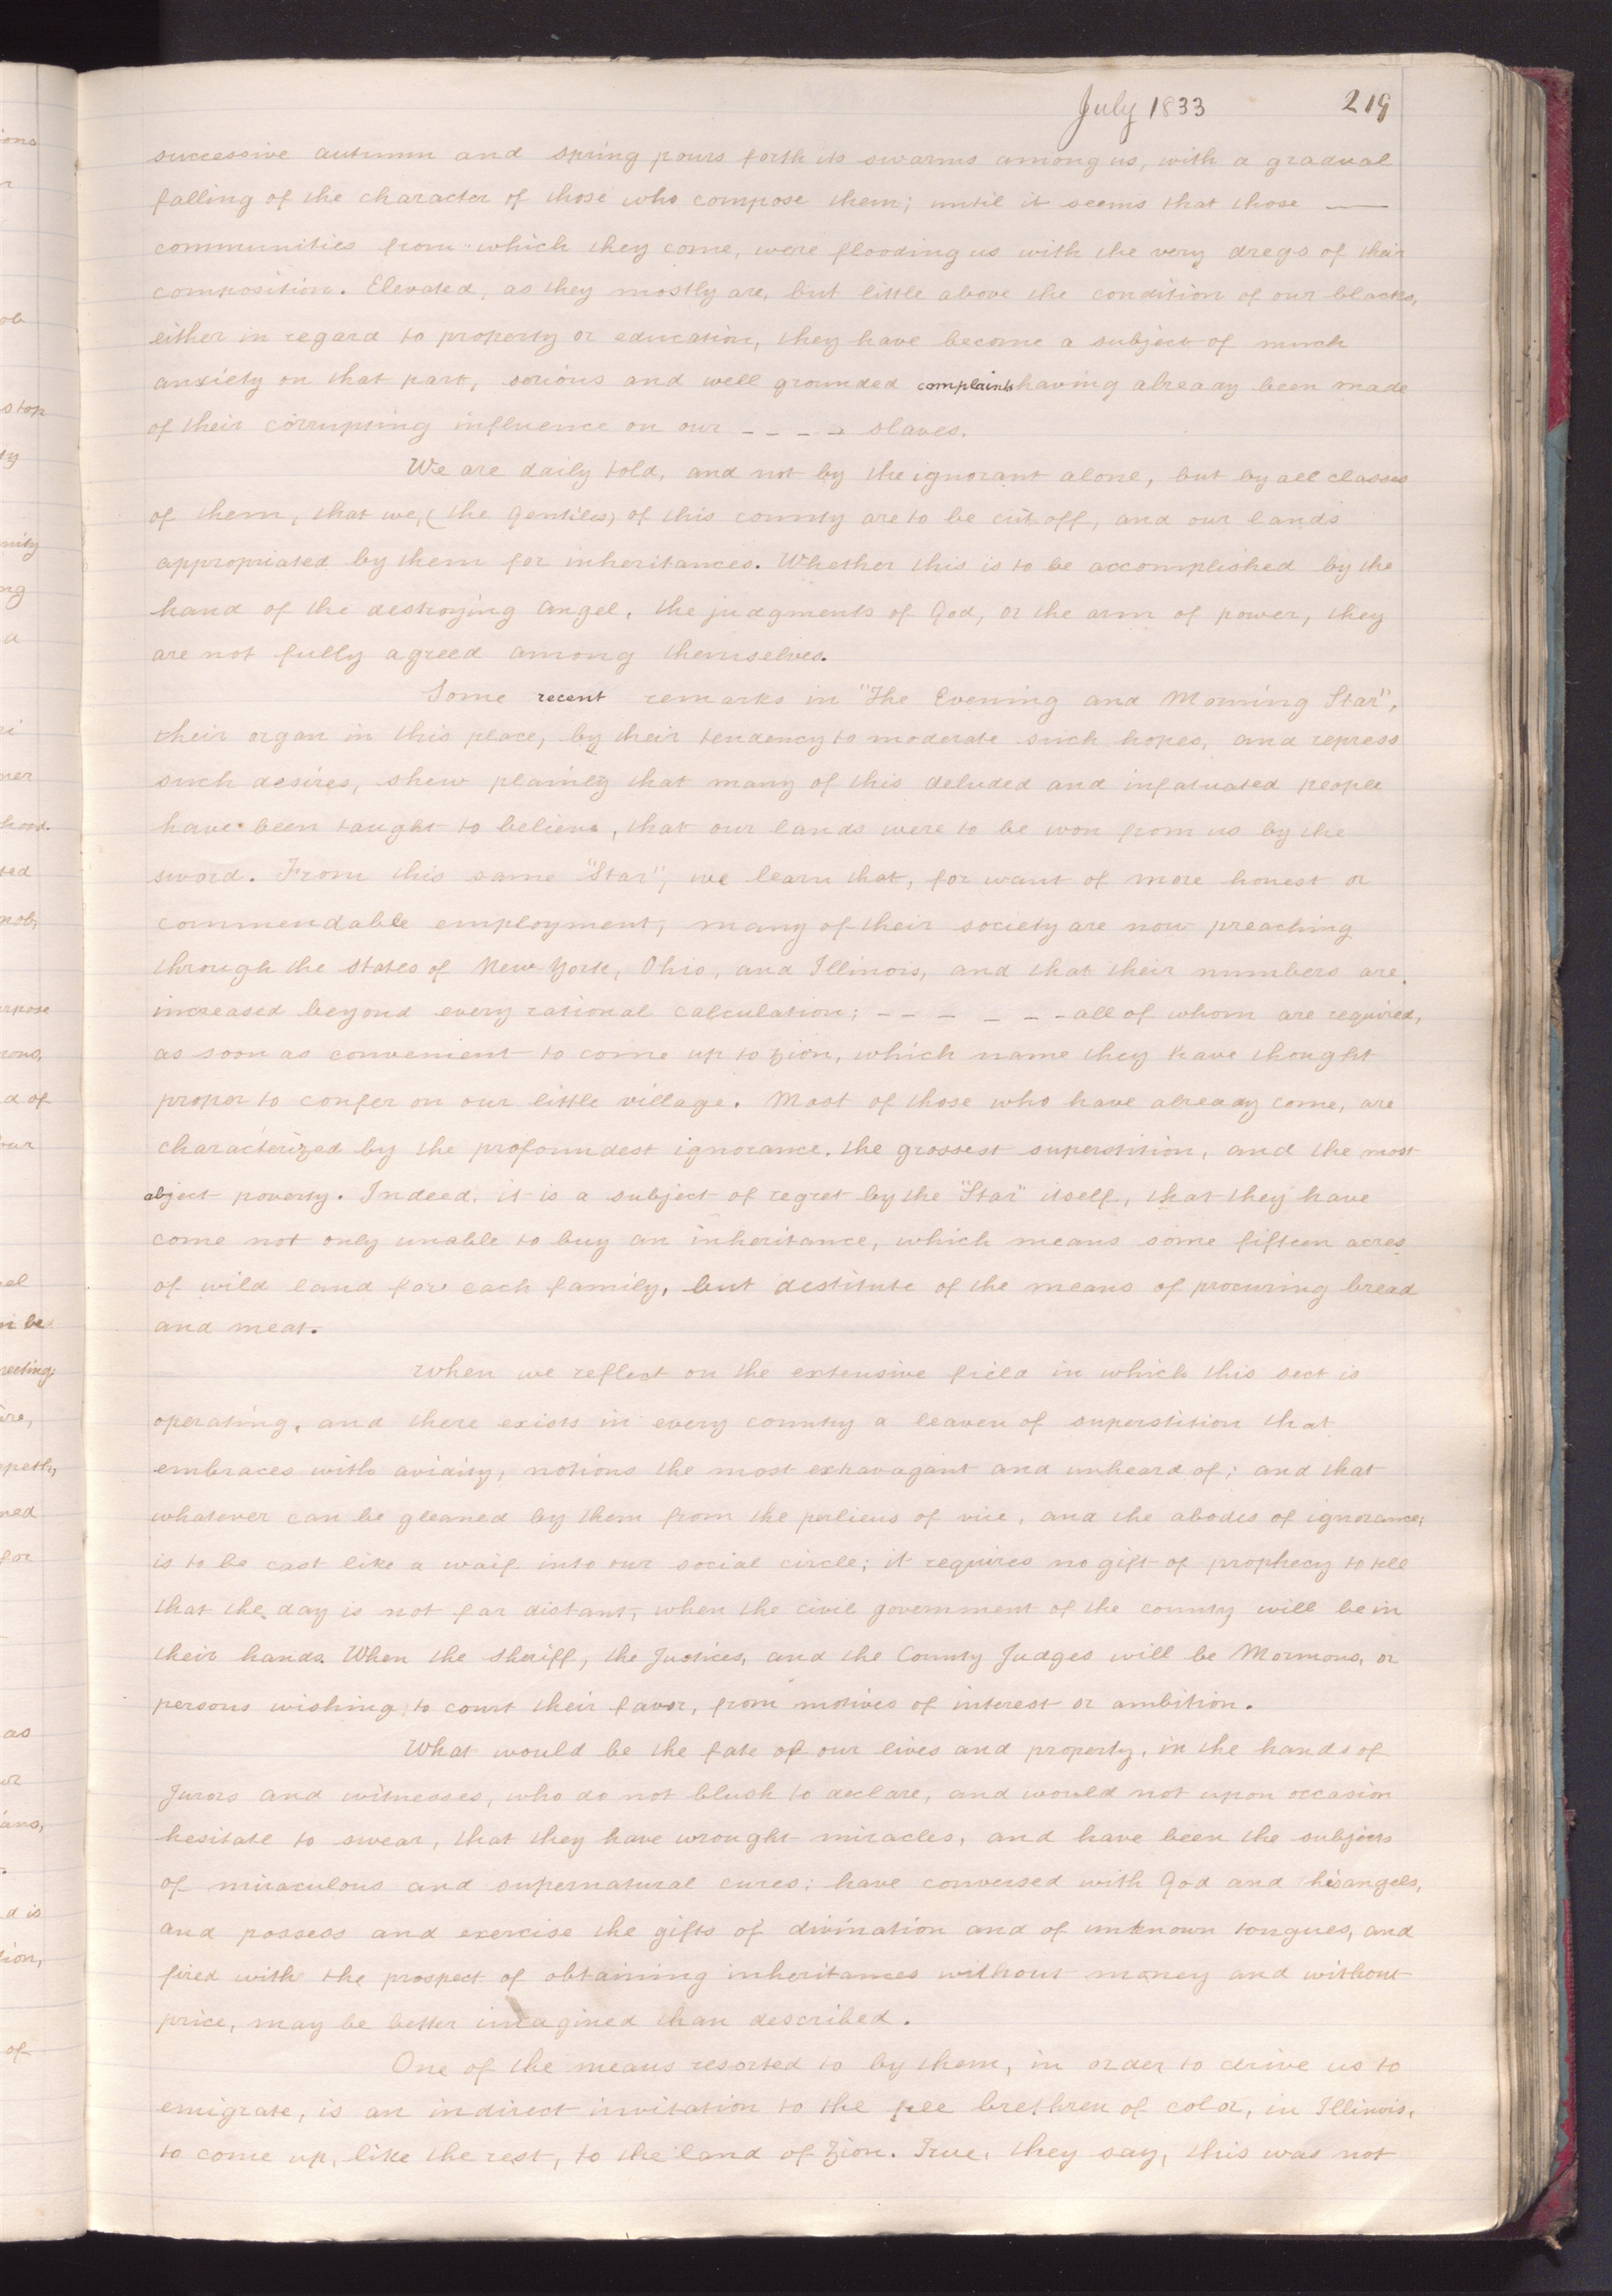 July 1833 219
successive autumn and spring pours forth its swarms among us, with a gradual
falling of the character of those who compose them; until it seems that those —
communities from which they come, were flooding us with the very dregs of their
composition. Elevated, as they mostly are, but little above the condition of our blacks,
either in regard to property or education, they have become a subject of much
anxiety on that part, serious and well grounded complaints having already been made
of their corrupting influence on our - - - - slaves.
We are daily told, and not by the ignorant alone, but by all classes
of them, that we, (the Gentiles) of this county are to be cut off, and our lands
appropriated by them for inheritances. Whether this is to be accomplished by the
hand of the destroying angel, the judgments of God, or the arm of power, they
are not fully agreed among themselves.
Some recent remarks in "The Evening and Morning Star",
their organ in this place, by their tendency to moderate such hopes, and repress
such desires, shew plainly that many of this deluded and infatuated people
have been taught to believe, that our lands were to be won from us by the
sword. From this same "Star", we learn that, for want of more honest or
commendable employment, many of their society are now preaching
through the states of New York, Ohio, and Illinois, and that their numbers are
increased beyond every rational calculation; - - - - - - all of whom are required,
as soon as convenient to come up to Zion, which name they have thought
proper to confer on our little village. Most of those who have already come, are
characterized by the profoundest ignorance, the grossest superstition, and the most
abject poverty. Indeed, it is a subject of regret by the "Star" itself, that they have
come not only unable to buy an inheritance, which means some fifteen acres
of wild land for each family, but destitute of the means of procuring bread
and meat.
When we reflect on the extensive field in which this sect is
operating, and there exists in every country a leaven of superstition that
embraces with avidity, notions the most extravagant and unheard of; and that
whatever can be gleaned by them from the perlieus of vice, and the abodes of ignorance,
is to be cast like a waif into our social circle; it requires no gift of prophecy to tell
that the day is not far distant, when the civil government of the county will be in
their hands. When the Sheriff, the Justices, and the County Judges will be Mormons, or
persons wishing to court their favor, from motives of interest or ambition.
What would be the fate of our lives and property, in the hands of
Jurors and witnesses, who do not blush to declare, and would not upon occasion
hesitate to swear, that they have wrought miracles, and have been the subjects
of miraculous and supernatural cures; have conversed with God and his angels,
and possess and exercise the gifts of divination and of unknown tongues, and
fired with the prospect of obtaining inheritances without money and without
price, may be better imagined than described.
One of the means resorted to by them, in order to drive us to
emigrate, is an indirect invitation to the free brethren of color, in Illinois,
to come up, like the rest, to the land of Zion. True, they say, this was not